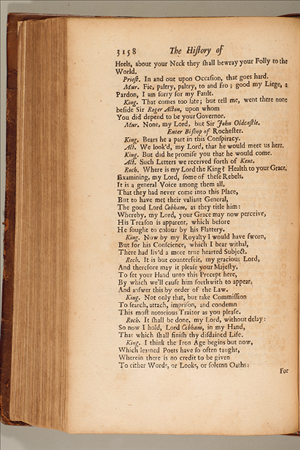 3158 The History of
Heels, about your Neck they shall bewray your Folly to the
World.
Priest. In and out upon Occasion, that goes hard.
Mur. Fie, paltry, paltry, to and fro; good my Liege, a
Pardon, I am sorry for my Fault.
King. That comes too late; but tell me, went there none
beside Sir Roger Acton, upon whom
You did depend to be your Governor.
Mur. None, my Lord, but Sir John Oldcastle.
Enter Bishop of Rochester.
King. Bears he a part in this Conspiracy.
Act. We look'd, my Lord, that he would meet us here.
King. But did he promise you that he would come.
Act. Such Letters we received forth of Kent.
Roch. Where is my Lord the King? Health to your Grace.
Examining, my Lord, some of these Rebels,
It is a general Voice among them all,
That they had never come into this Place,
But to have met their valiant General,
The good Lord Cobham, as they title him:
Whereby, my Lord, your Grace may now perceive,
His Treason is apparent, which before
He sought to colour by his Flattery.
King. Now by my Royalty I would have sworn,
But for his Conscience, which I bear withal,
There had liv'd a more true hearted Subject.
Roch. It is but counterfeit, my gracious Lord,
And therefore may it please your Majesty,
To set your Hand unto this Precept here,
By which we'll cause him forthwith to appear,
And answer this by order of the Law.
King. Not only that, but take Commission
To search, attach, imprison, and condemn
This most notorious Traitor as you please.
Roch. It shall be done, my Lord, without delay:
So now I hold, Lord Cobham, in my Hand,
That which shall finish thy disdained Life.
King. I think the Iron Age begins but now,
Which learned Poets have so often taught,
Wherein there is no credit to be given
To either Words, or Looks, or solemn Oaths:
For